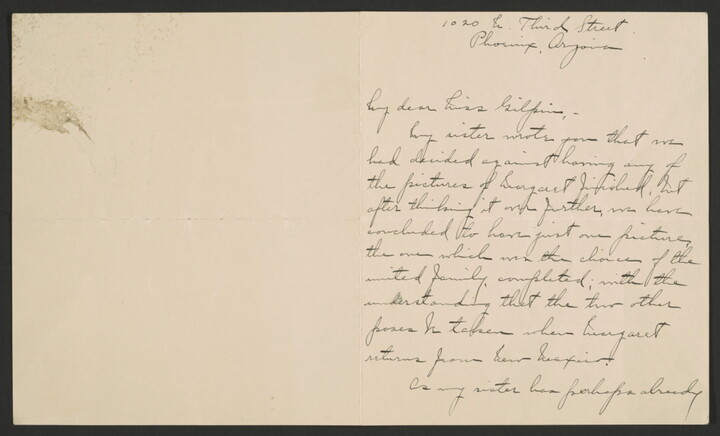 1020 N. Third Street.
Phoenix, Arizona
My dear Miss Gilpin,-
My sister wrote you that we
had decided against having any of
the pictures of Margaret finished, but
after thinking it over further, we have
concluded to have just one picture,
the one which was the choice of the
united family, completed; with the
understanding that the two other
poses be taken when Margaret
returns from New Mexico.
As my sister has perhaps already